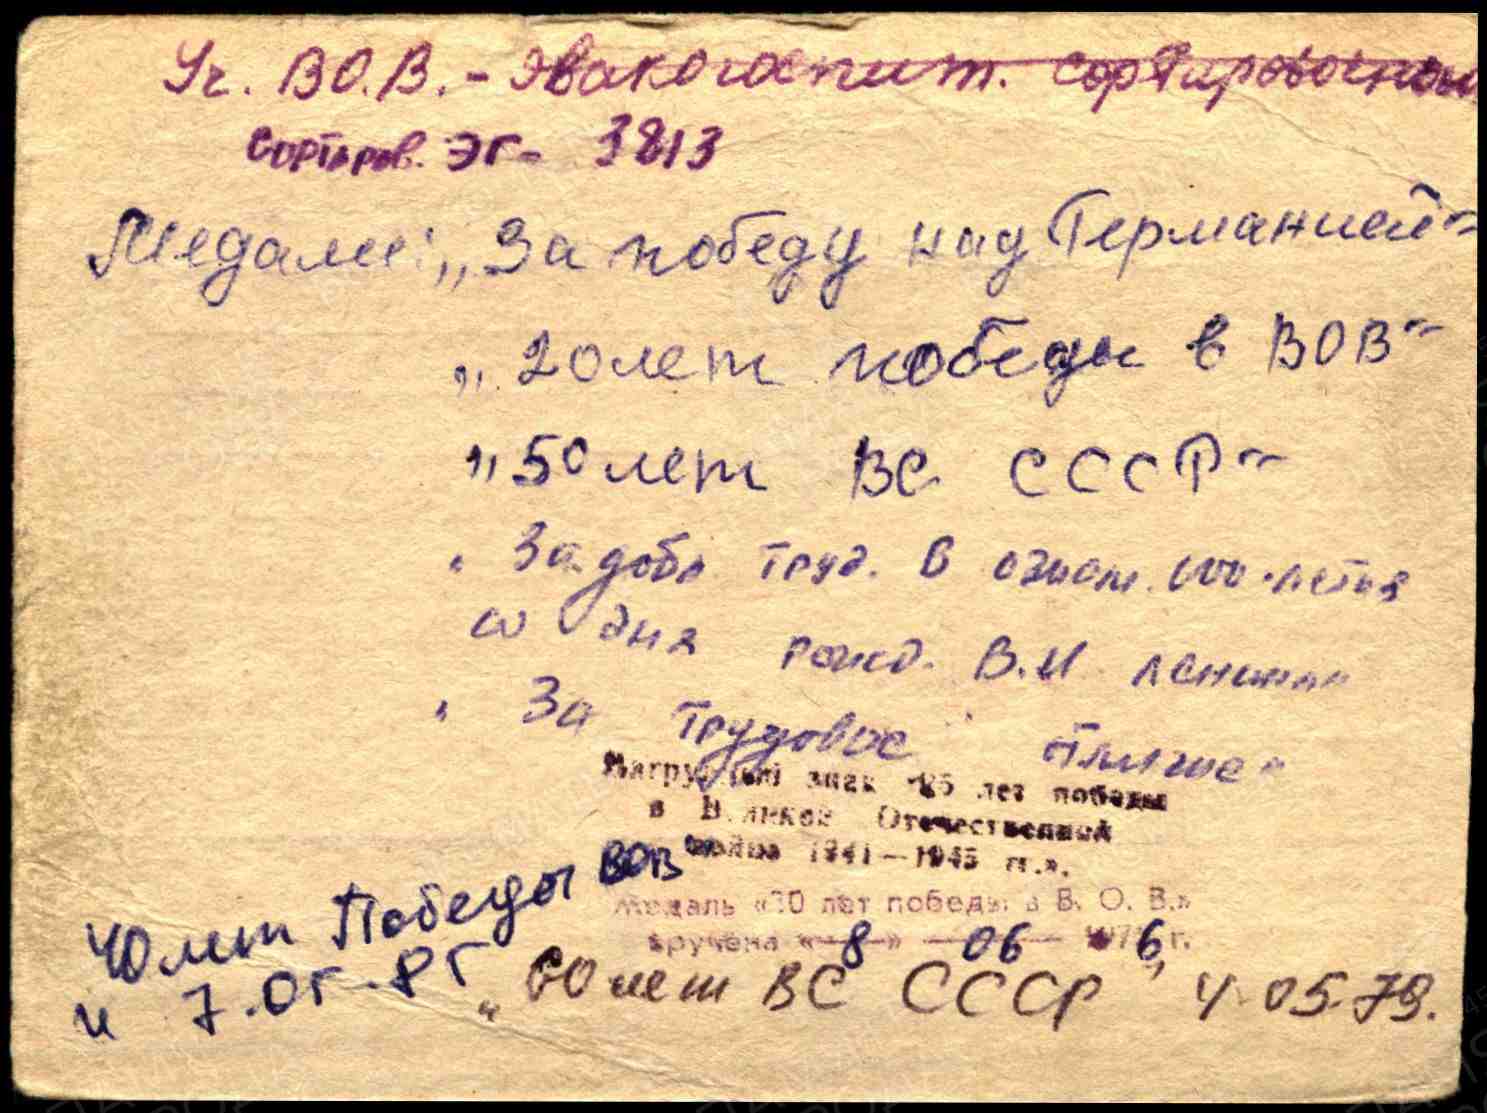 Уч. ВО.В. - Эвакогоспит. сортировочный
сортиров. ЭГ - 3813
Медали: „За победу над Германией“
„20 лет победы в ВОВ“
„50 лет ВС СССР“
„За добл. труд. В ознам. 100-летия
со дня рожд. В.И Ленина“
„За трудовое отличие“
Нагрудный знак «25 лет победы
в Великой Отечественной
войне 1941—1945 гг.».
40 лет Победы ВОВ
Медаль «30 лет победы в В. О. В.»
вручена «8» 06 1976 г.
7.05.85
„60 лет ВС СССР“ 4.05.79.